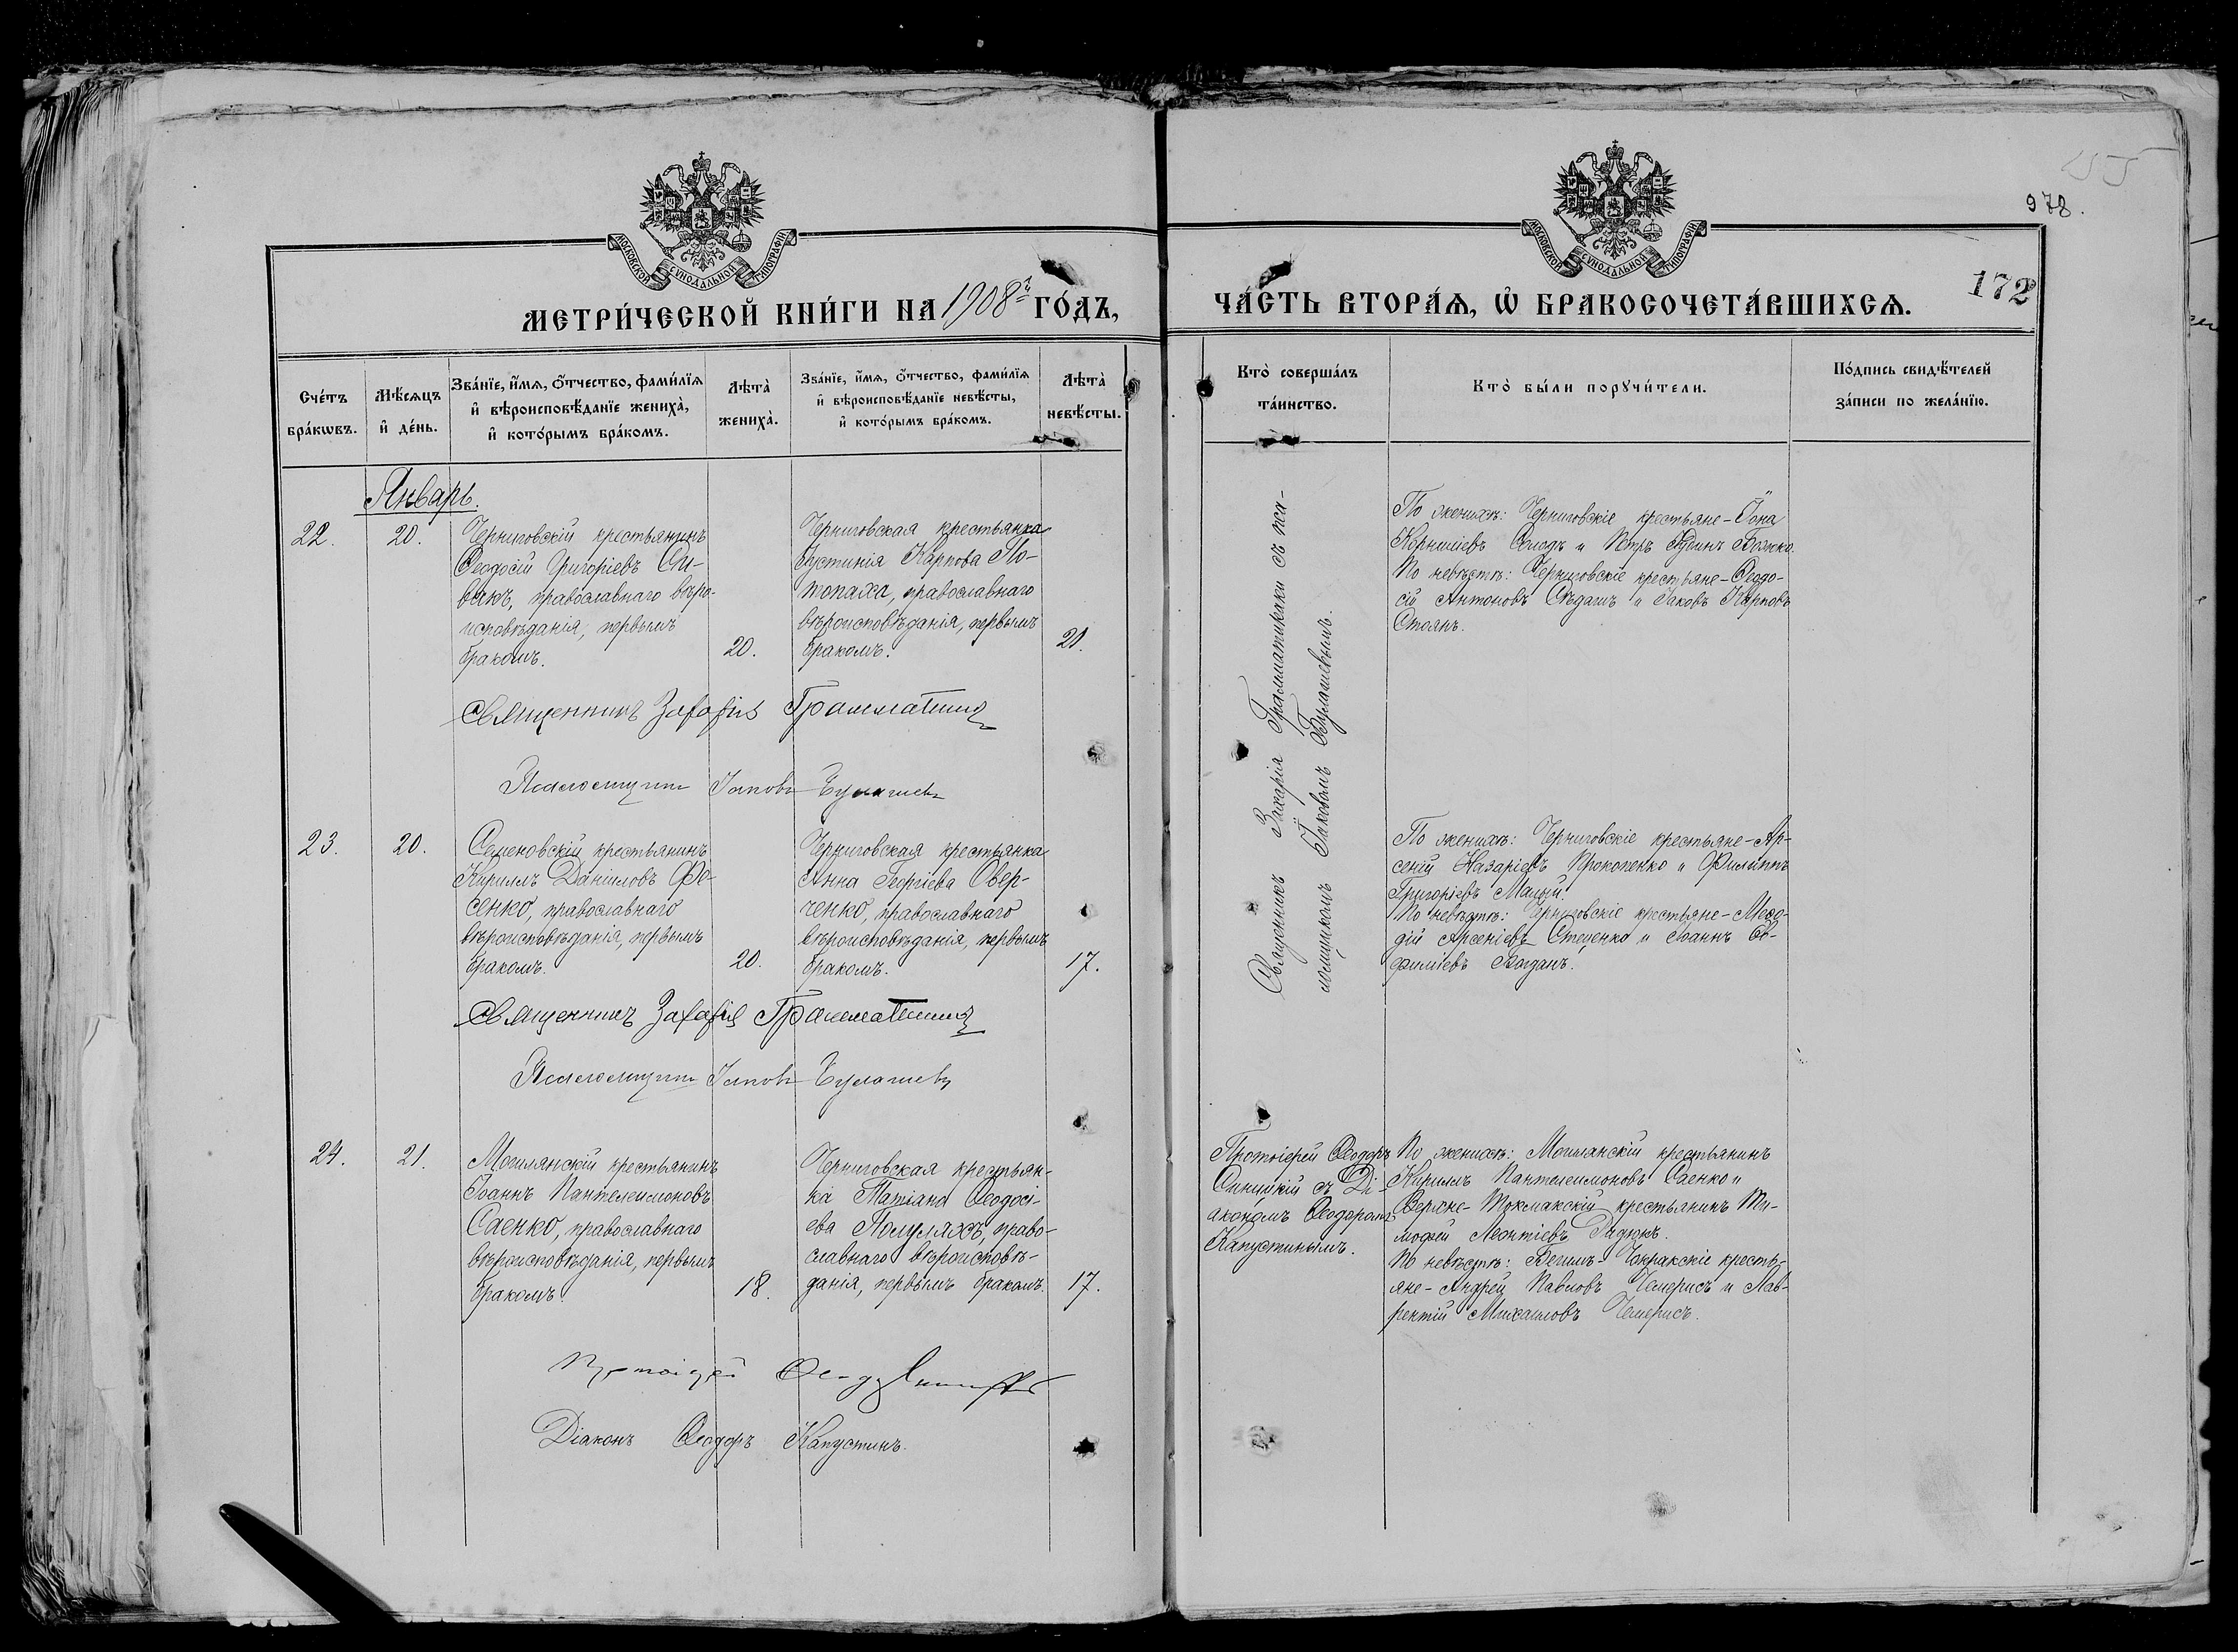 978.
МОСКОВСКОЙ СѴНОДАЛЬНОЙ ТИПОГРАФІИ
МЕТРИ́ЧЕСКОЙ КНИ́ГИ НА 1908 ГО́ДЪ,
Сче́тъ
бра́кѡвъ.
Мѣ́сѧцъ
и҆ де́нь.
Зва́нїе, и҆́мѧ, ѻ҆́тчество, фами́лїѧ
и҆ вѣроисповѣ́данїе жениха̀,
и҆ кото́рымъ бра́комъ.
Лѣта̀
жениха̀.
Зва́нїе, и҆́мѧ, ѻ҆́тчество, фами́лїѧ
и҆ вѣроисповѣ́данїе невѣ́сты,
и҆ кото́рымъ бра́комъ.
Лѣта̀
невѣ́сты.
Январь.
22.
20.
Черниговскій крестьянинъ
Ѳеодосій Григоріевъ Си-
вакъ, православнаго вѣро-
исповѣданія, первымъ
бракомъ.
20.
Черниговская крестьянка
Іустинія Карпова По-
топаха, православнаго
вѣроисповѣданія, первымъ
бракомъ.
21.
Священникъ Захарія Грамматикаки
Псаломщикъ Іаковъ Булашевъ
23.
20.
Семеновскій крестьянинъ
Кириллъ Даніиловъ Фе-
сенко, православнаго
вѣроисповѣданія, первымъ
бракомъ.
20.
Черниговская крестьянка
Анна Георгіева Овер-
ченко, православнаго
вѣроисповѣданія, первымъ
бракомъ.
17.
Священникъ Захарія Грамматикаки
Псаломщикъ Іаковъ Булашевъ
24.
21.
Могилянскій крестьянинъ
Іоаннъ Пантелеимоновъ
Саенко, православнаго
вѣроисповѣданія, первымъ
бракомъ.
18.
Черниговская крестьян-
ка Татіана Ѳеодосі-
ева Полуляхъ, право-
славнаго вѣроисповѣ-
данія, первымъ бракомъ.
17.
Протоіерей
Діаконъ Ѳеодоръ Капустинъ.
МОСКОВСКОЙ СѴНОДАЛЬНОЙ ТИПОГРАФІИ
ЧА́СТЬ ВТОРА́Ѧ, Ѡ҆ БРАКОСОЧЕТА́ВШИХСѦ.
172
Кто̀ соверша́лъ
та́инство.
Кто̀ бы́ли порꙋчи́тели.
По́дпись свидѣ́телей
за́писи по жела́нїю.
Священникъ Захарія Грамматикаки съ пса-
ломщикомъ Іаковомъ Булашевымъ.
По женихѣ: Черниговскіе крестьяне - Іона
Корниліевъ Солодъ и Петръ Божко.
По невѣстѣ: Черниговскіе крестьяне - Ѳеодо-
сій Антоновъ Сѣдашъ и Іаковъ Карповъ
Стоянъ.
По женихѣ: Черниговскіе крестьяне - Ар-
сеній Назаріевъ Прокопенко и Филиппъ
Григоріевъ Малый.
По невѣстѣ: Черниговскіе крестьяне - Меѳо-
дій Арсеніевъ Стеценко и Іоаннъ Ев-
фиміевъ Богданъ.
Протоіерей Ѳеодоръ
Синицкій съ Ді-
акономъ Ѳеодоромъ
Капустинымъ.
По женихѣ: Могилянскій крестьянинъ
Кириллъ Пантелеимоновъ Саенко и
Верхне-Токмакскій крестьянинъ Ти-
моѳей Леонтіевъ Радюкъ.
По невѣстѣ: Бегимъ-Чокракскіе кресть-
яне - Андрей Павловъ Чемерисъ и Лав-
рентій Михаиловъ Чемерисъ.